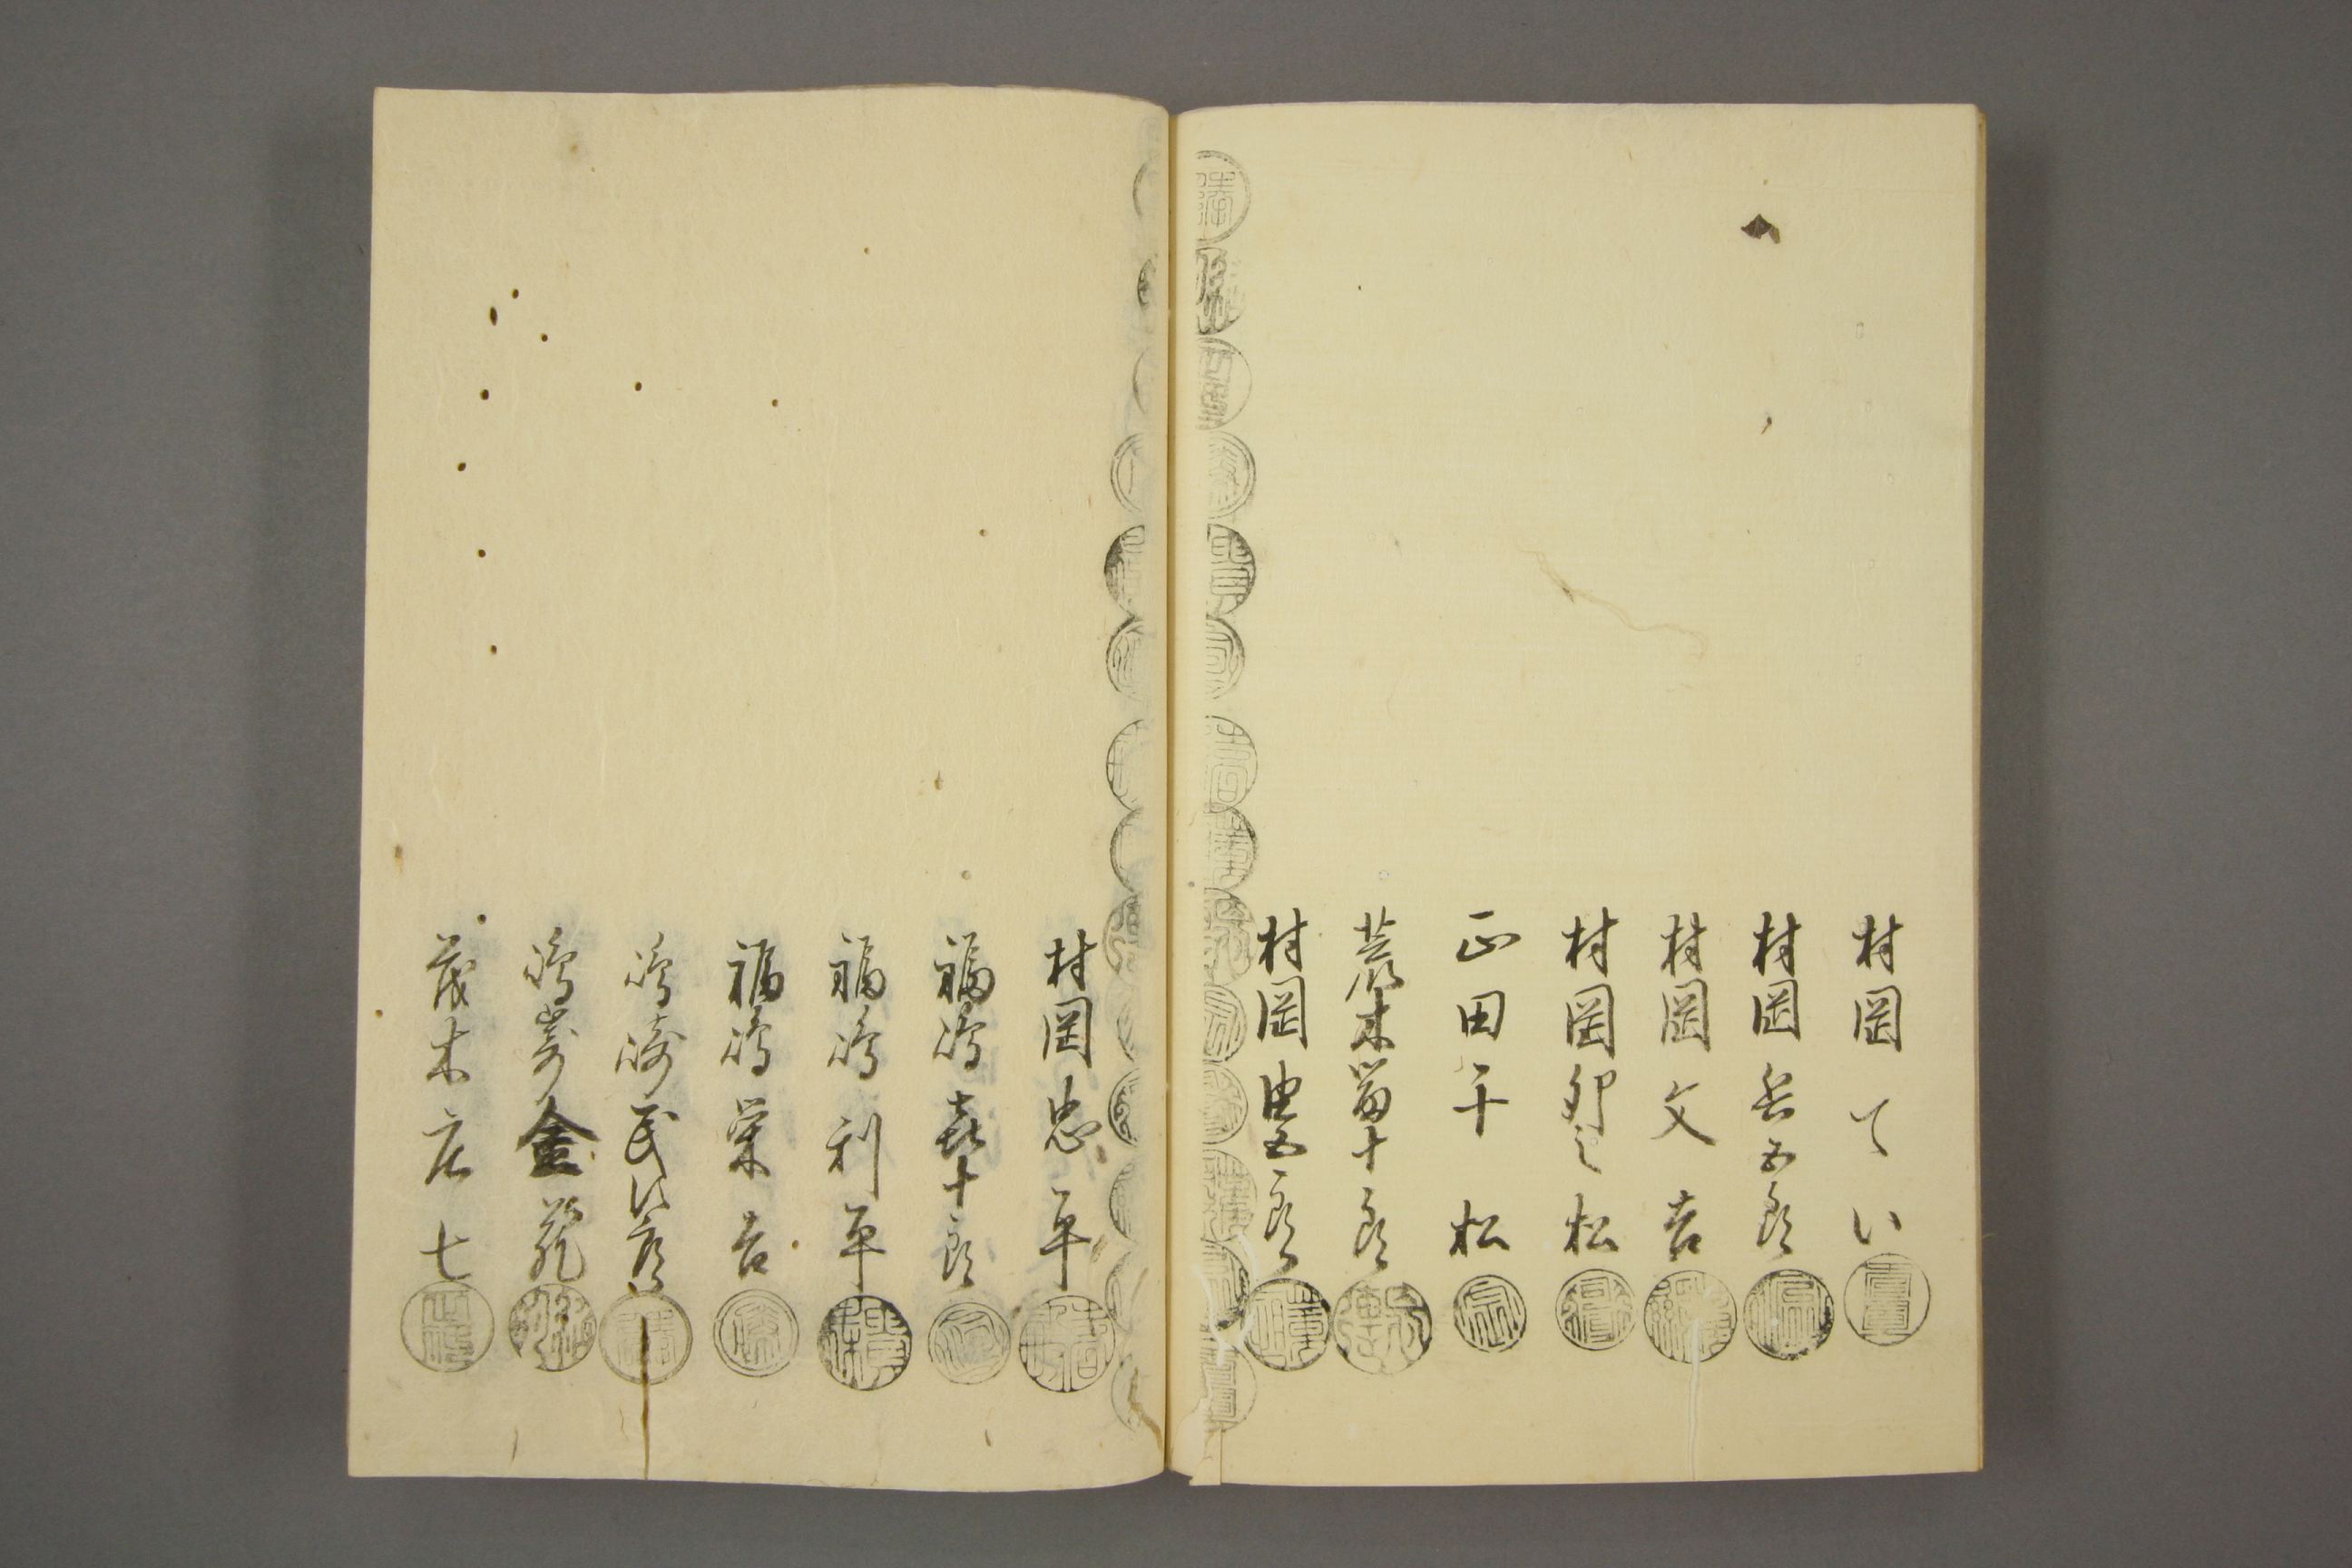 村岡てい
村岡兵五郎
村岡文吉
村岡卯之松
正田千松
荒木留十郎
村岡豊五郎
村岡忠平
福嶋喜十郎
福嶋利平
福嶋栄吉
嶋崎民次郎
嶋嵜金蔵
茂木庄七